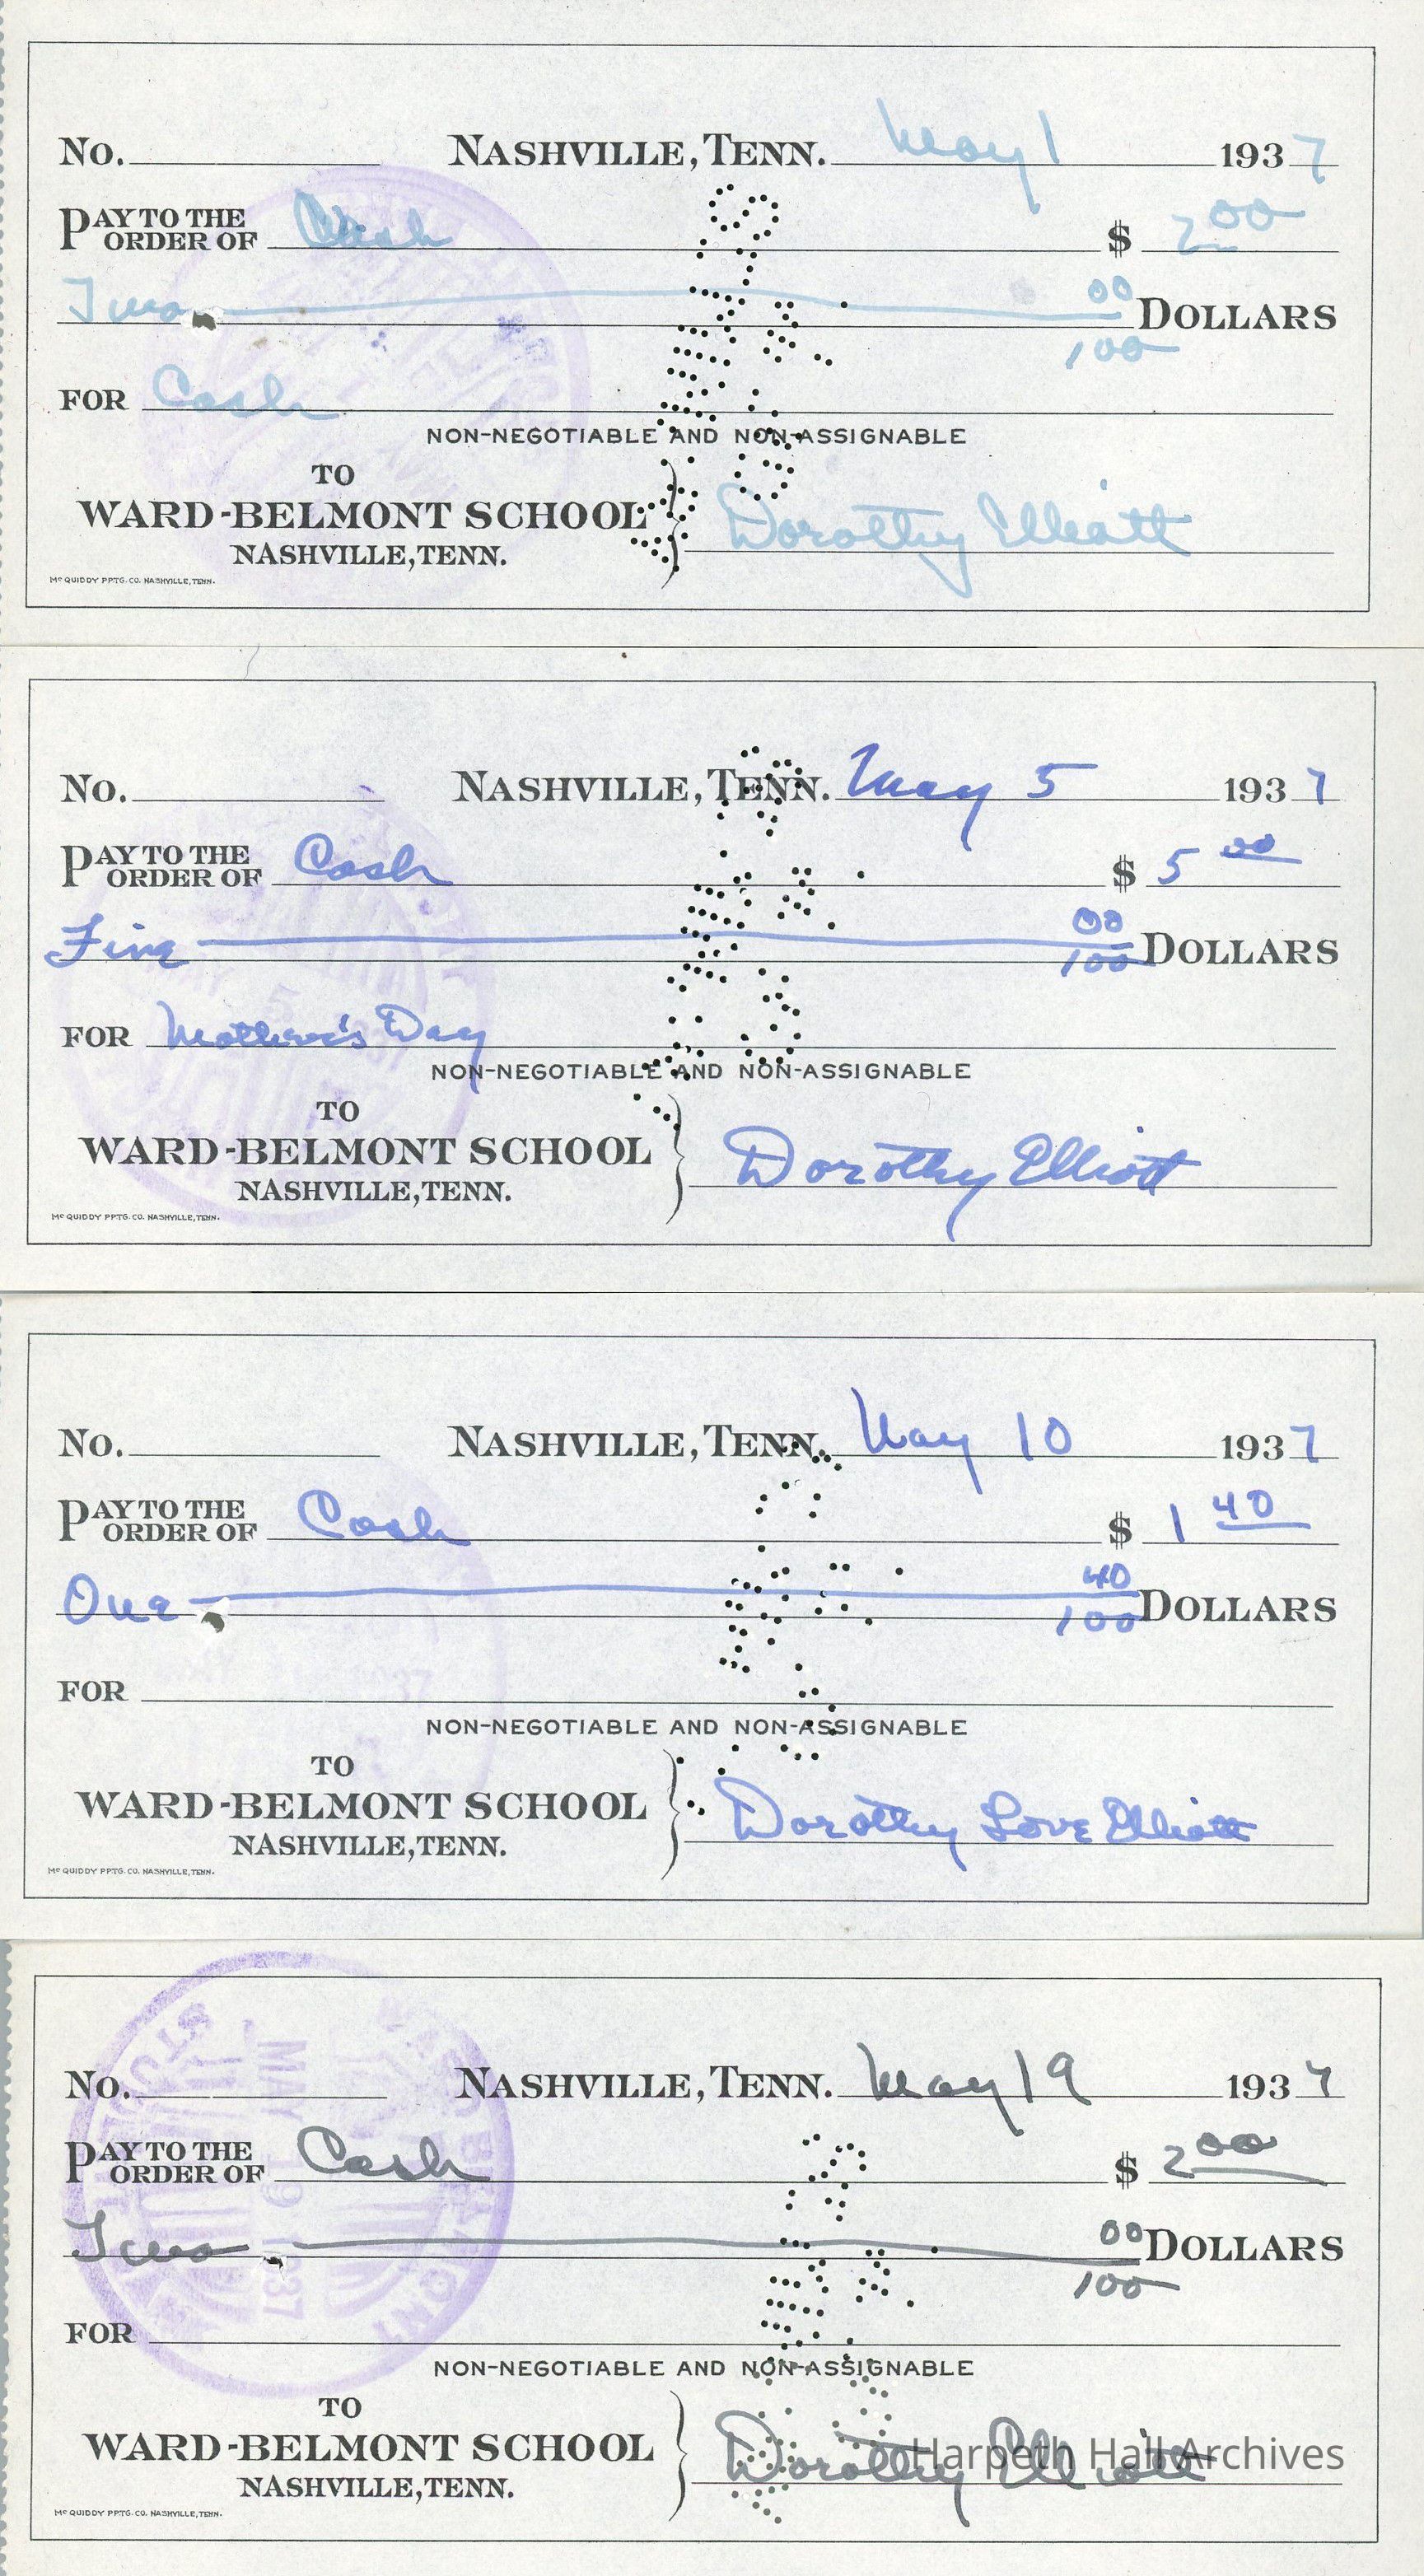 No. NASHVILLE, TENN. May 1 1937
PAY TO THE ORDER OF Cash $ 2 00
Two 00/100 DOLLARS
FOR Cash
NON-NEGOTIABLE AND NON-ASSIGNABLE
TO
WARD-BELMONT SCHOOL
NASHVILLE, TENN. Dorothy Elliott
Mc QUIDDY PPTG. CO. NASHVILLE, TENN.
No. NASHVILLE, TENN. May 5 1937
PAY TO THE ORDER OF Cash $ 5 00
Five 00/100 DOLLARS
FOR Mother's Day
NON-NEGOTIABLE AND NON-ASSIGNABLE
TO
WARD-BELMONT SCHOOL
NASHVILLE, TENN. Dorothy Elliott
Mc QUIDDY PPTG. CO. NASHVILLE, TENN.
No. NASHVILLE, TENN. May 10 1937
PAY TO THE ORDER OF Cash $ 1 40
One 40/100 DOLLARS
FOR
NON-NEGOTIABLE AND NON-ASSIGNABLE
TO
WARD-BELMONT SCHOOL
NASHVILLE, TENN. Dorothy Love Elliott
Mc QUIDDY PPTG. CO. NASHVILLE, TENN.
MAY 19 1937
No. NASHVILLE, TENN. May 19 1937
PAY TO THE ORDER OF Cash $ 2 00
Two 00/100 DOLLARS
FOR
NON-NEGOTIABLE AND NON-ASSIGNABLE
TO
WARD-BELMONT SCHOOL
NASHVILLE, TENN. Dorothy Elliott
Harpeth Hall Archives
Mc QUIDDY PPTG. CO. NASHVILLE, TENN.